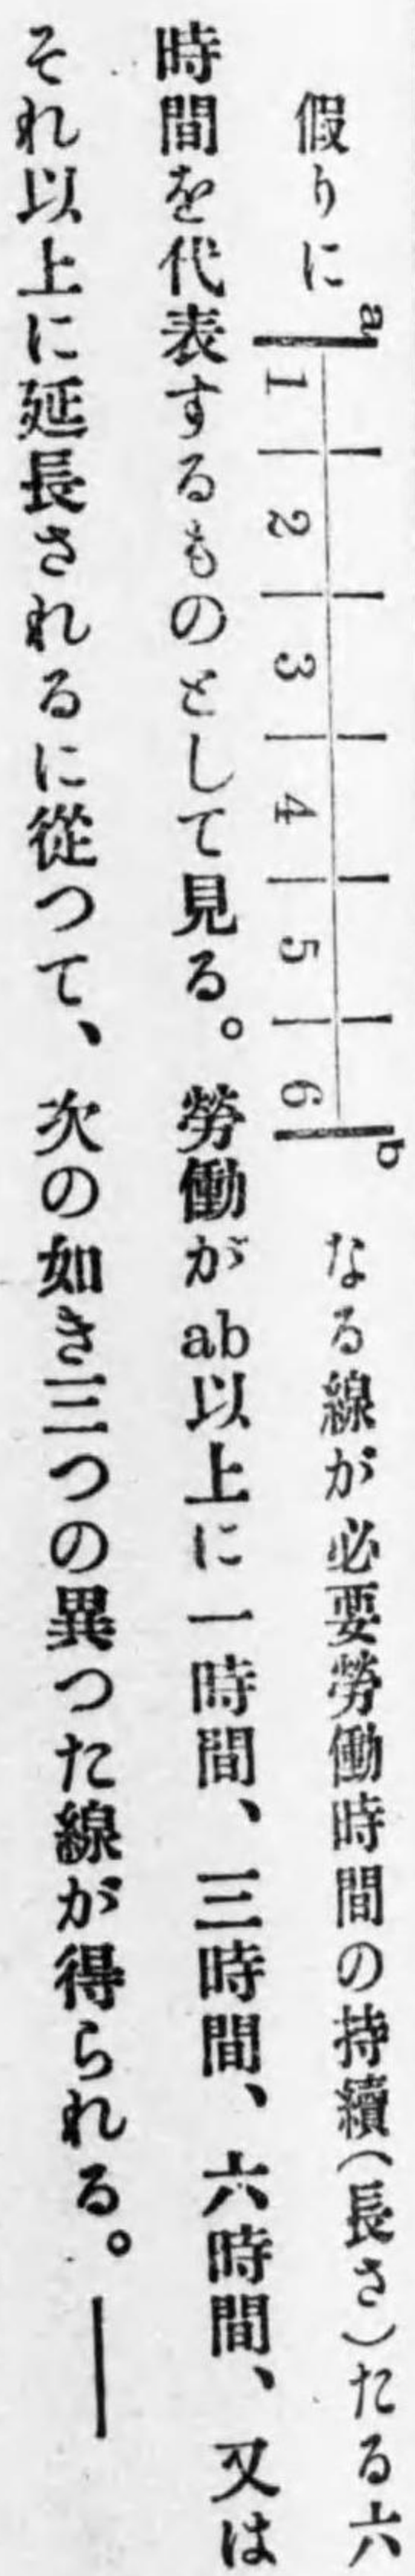 假りに a 1 2 3 4 5 6 b なる線が必要勞働時間の持續（長さ）たる六
時間を代表するものとして見る。勞働がab以上に一時間、三時間、六時間、又は
それ以上に延長されるに從つて、次の如き三つの異つた線が得られる。――